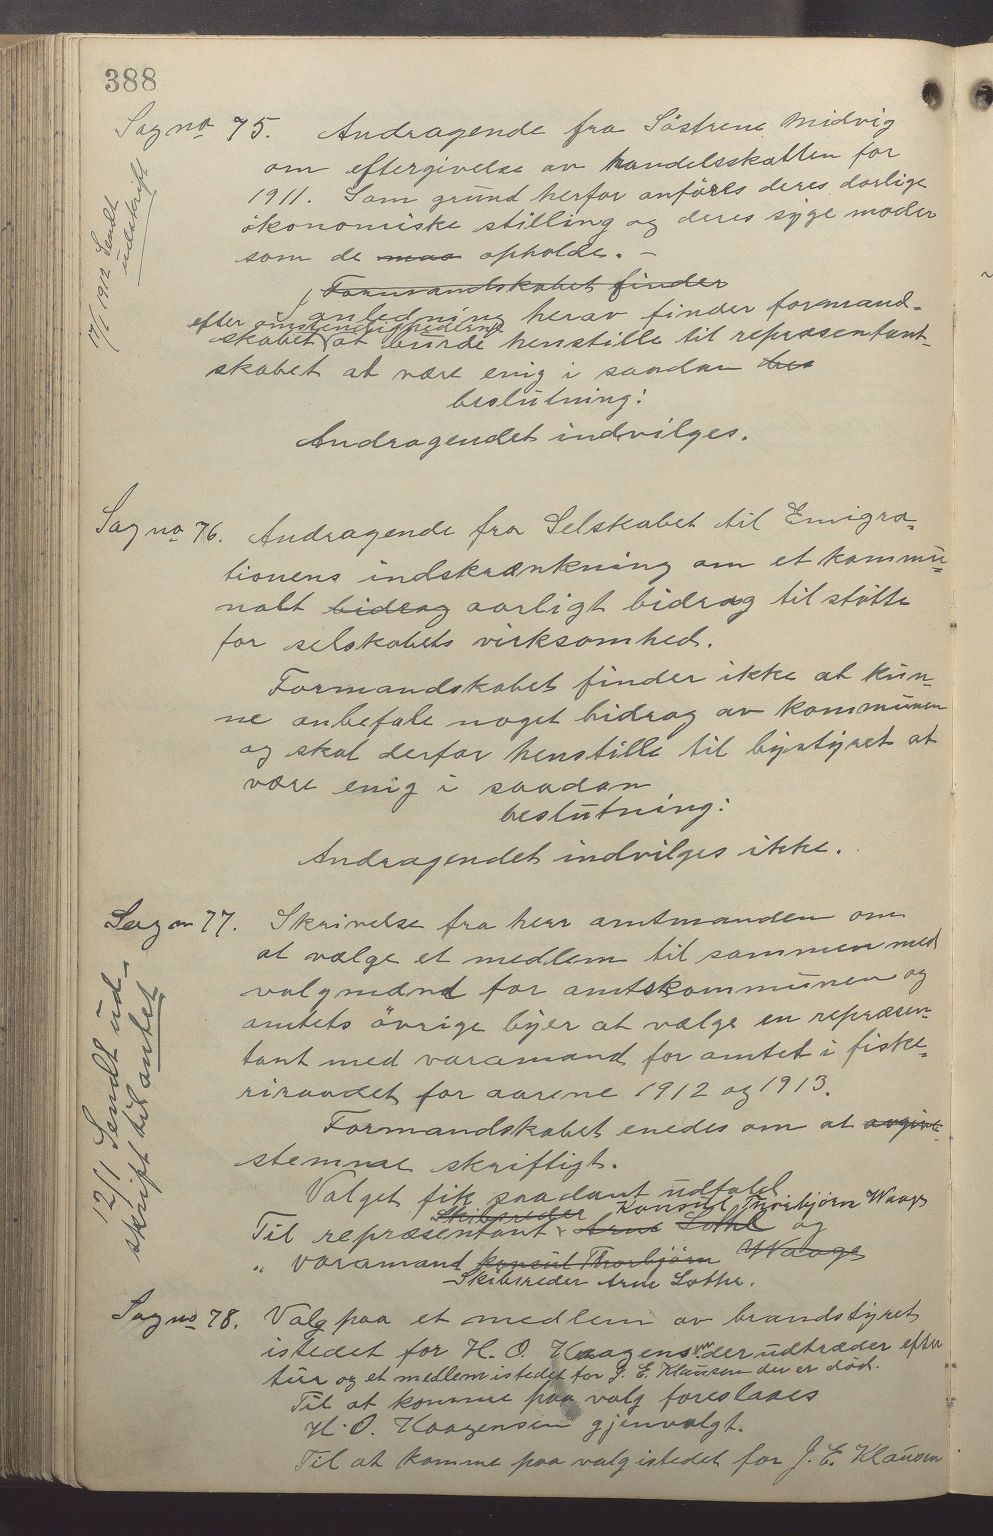 388
Sag no 75. Andragende fra Söstrene Midvig
om eftergivelse av handelsskatten for
1911. Som grund herfor anföres deres daarlige
ökonomiske stilling og deres syge moder
som de maa opholde. –
Formandskabet finder
I anledning herav finder formand-
efter omstendighederne
skabet at burde henstille til repræsentant-
skabet at være enig i saadan bes
beslutning:
Andragendet indvilges.
17/1 1912 Sendt
udskrift
Sag no 76. Andragende fra Selskabet til Emigra-
tionens indskrænkning om et kommu-
nalt bidrag aarligt bidrag til støtte
for selskabets virksomhed.
Formandskabet finder ikke at kun-
ne anbefale noget bidrag av kommunen
og skal derfor henstille til bystyret at
være enig i saadan
beslutning:
Andragendet indvilges ikke.
Sag no 77. Skrivelse fra herr amtmanden om
at vælge et medlem til sammen med
valgmænd for amtskommunen og
amtets övrige byer at vælge en repræsen-
tant med varamand for amtet i fiske-
riraadet for aarene 1912 og 1913.
Formandskabet enedes om at avgive
stemme skriftligt.
Valget fik saadant udfald
Skibsreder Konsul Thorbjörn Waage
Til repræsentant Arne Lothe og
" varamand konsul Thorbjörn Waage
Skibsreder Arne Lothe.
12/1 Sendt ud-
skrift til amtet
Sag no 78. Valg paa et medlem av brandstyret
istedet for H. O. Haagensen der udtræder efter
tur og et medlem istedet for J. E. Klausen der er död.
Til at komme paa valg foreslaaes
H. O. Haagensen gjenvalgt.
Til at komme paa valg istedet for J. E. Klausen